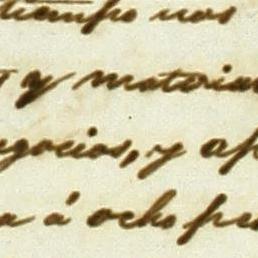 tiempo nos
y motoria
egocios, y ap
a á ocho pe